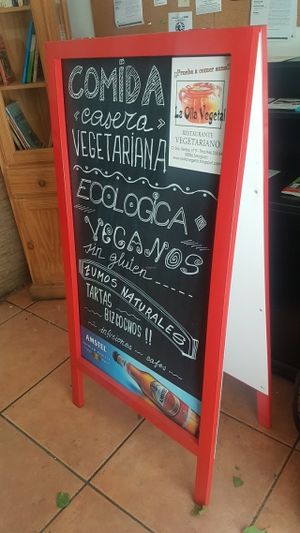 COMIDA
«casera»
VEGETARIANA
ECOLOGICA
VEGANOS
sin gluten
ZUMOS NATURALES
TARTAS
BIZCOCHOS !!
infusiones cafes
¡Prueba a comer sano!
La Olla Vegetal
RESTAURANTE
VEGETARIANO
AMSTEL